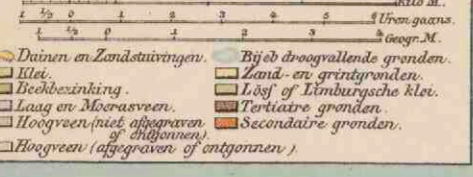 Kilo M.
1 ½ 0 1 2 3 4 5 6 Uren gaans.
1 ½ 0 1 2 3 4 Geogr. M.
Duinen en Zandstuivingen.
Klei.
Beekbezinking.
Laag en Moerasveen.
Hoogveen (niet afgegraven
of ontgonnen).
Hoogveen (afgegraven of ontgonnen).
Bij eb droogvallende gronden.
Zand- en grintgronden.
Löss of Limburgsche klei.
Tertiaire gronden.
Secondaire gronden.